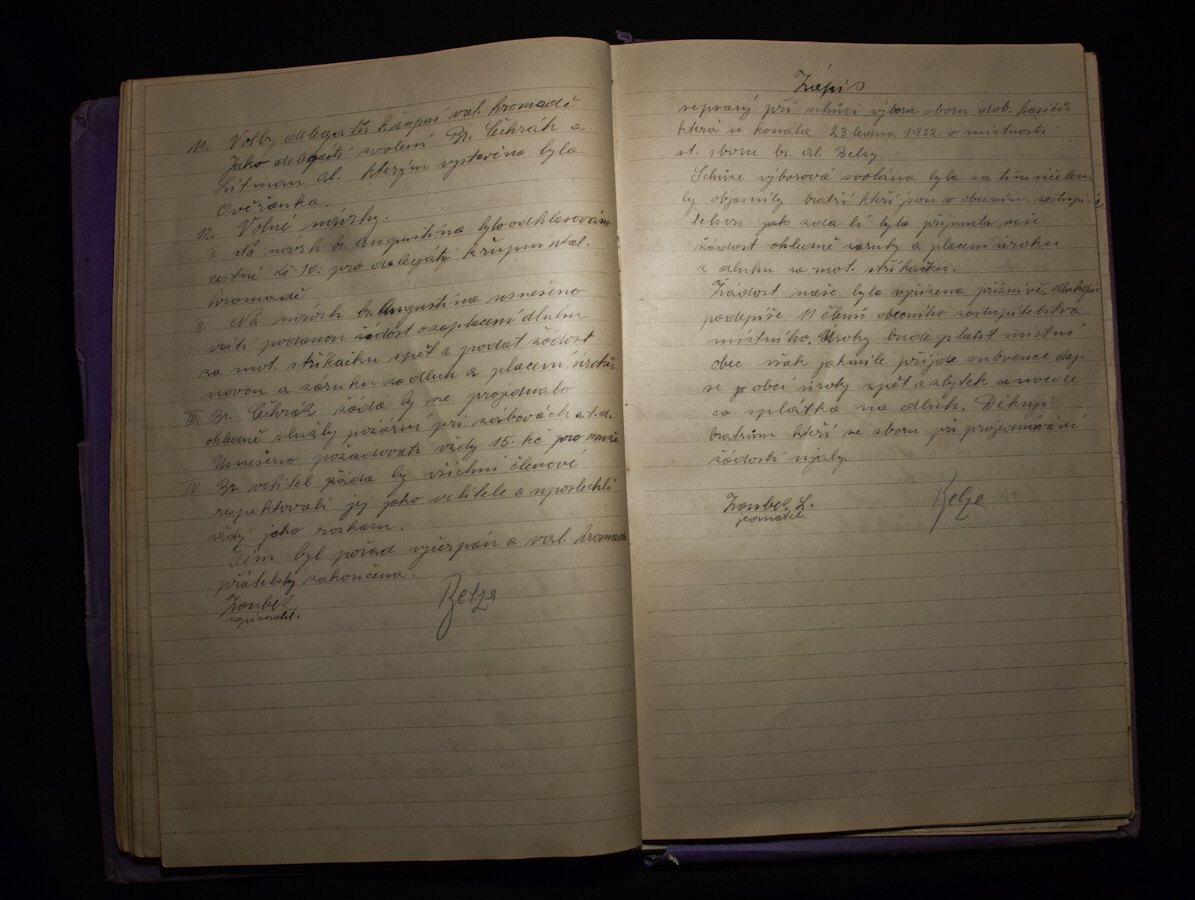 11. Volby delegátů k župní val. hromadě
Jako delegáti zvoleni Br. Čihrák a
Litman Al. kterým vystavena byla
Ověřenka.
12. Volné návrhy.
I. Na návrh br. Augustina bylo odhlasováno
cestné Kč 10: pro delegáty k župní val.
hromadě.
II. Na návrh br. Augustina usnešeno
vzíti podanou žádost o zaplacení dluhu
za mot. stříkačku zpět a podat žádost
novou a záruku za dluh a placení úroků.
III. Br. Čihrák žádá by se projednalo
ohledně služby požární při zábavách a t.d.
Usnešeno požadovati vždy 15. kč pro muže
IV Br. velitel žádá by všichni členové
respektovali jej jako velitele a uposlechli
vždy jeho rozkazu.
Tím byl pořad vyčerpán a val. hromada
přátelsky zakončena.
Zoubek
zapisovatel.
Belza
Zápis
sepsaný při schůzi výboru sboru dob. hasičů
která se konala 23 ledna 1932 o místnosti
st. sboru br. Al. Belzy.
Schůze výborová svolána byla za tím účelem
by objasnily bratří kteří jsou v obecním zastupi-
telstvu jak zda-li byla přijmuta naše
žádost ohledně záruky a placení úroku
z dluhu za mot. stříkačku.
Žádost naše byla vyřízena příznivě, dlužní
podepíše 11 členů obecního zastupitelstva
místního, Úroky bude platit místní
obec však jakmile přijde subvence dají
se obci úroky zpět a zbytek se uvede
co splátka na dluh. Děkuji
bratrům kteří se sboru při projednávání
žádosti ujaly.
Zoubek L.
jednatel
Belza